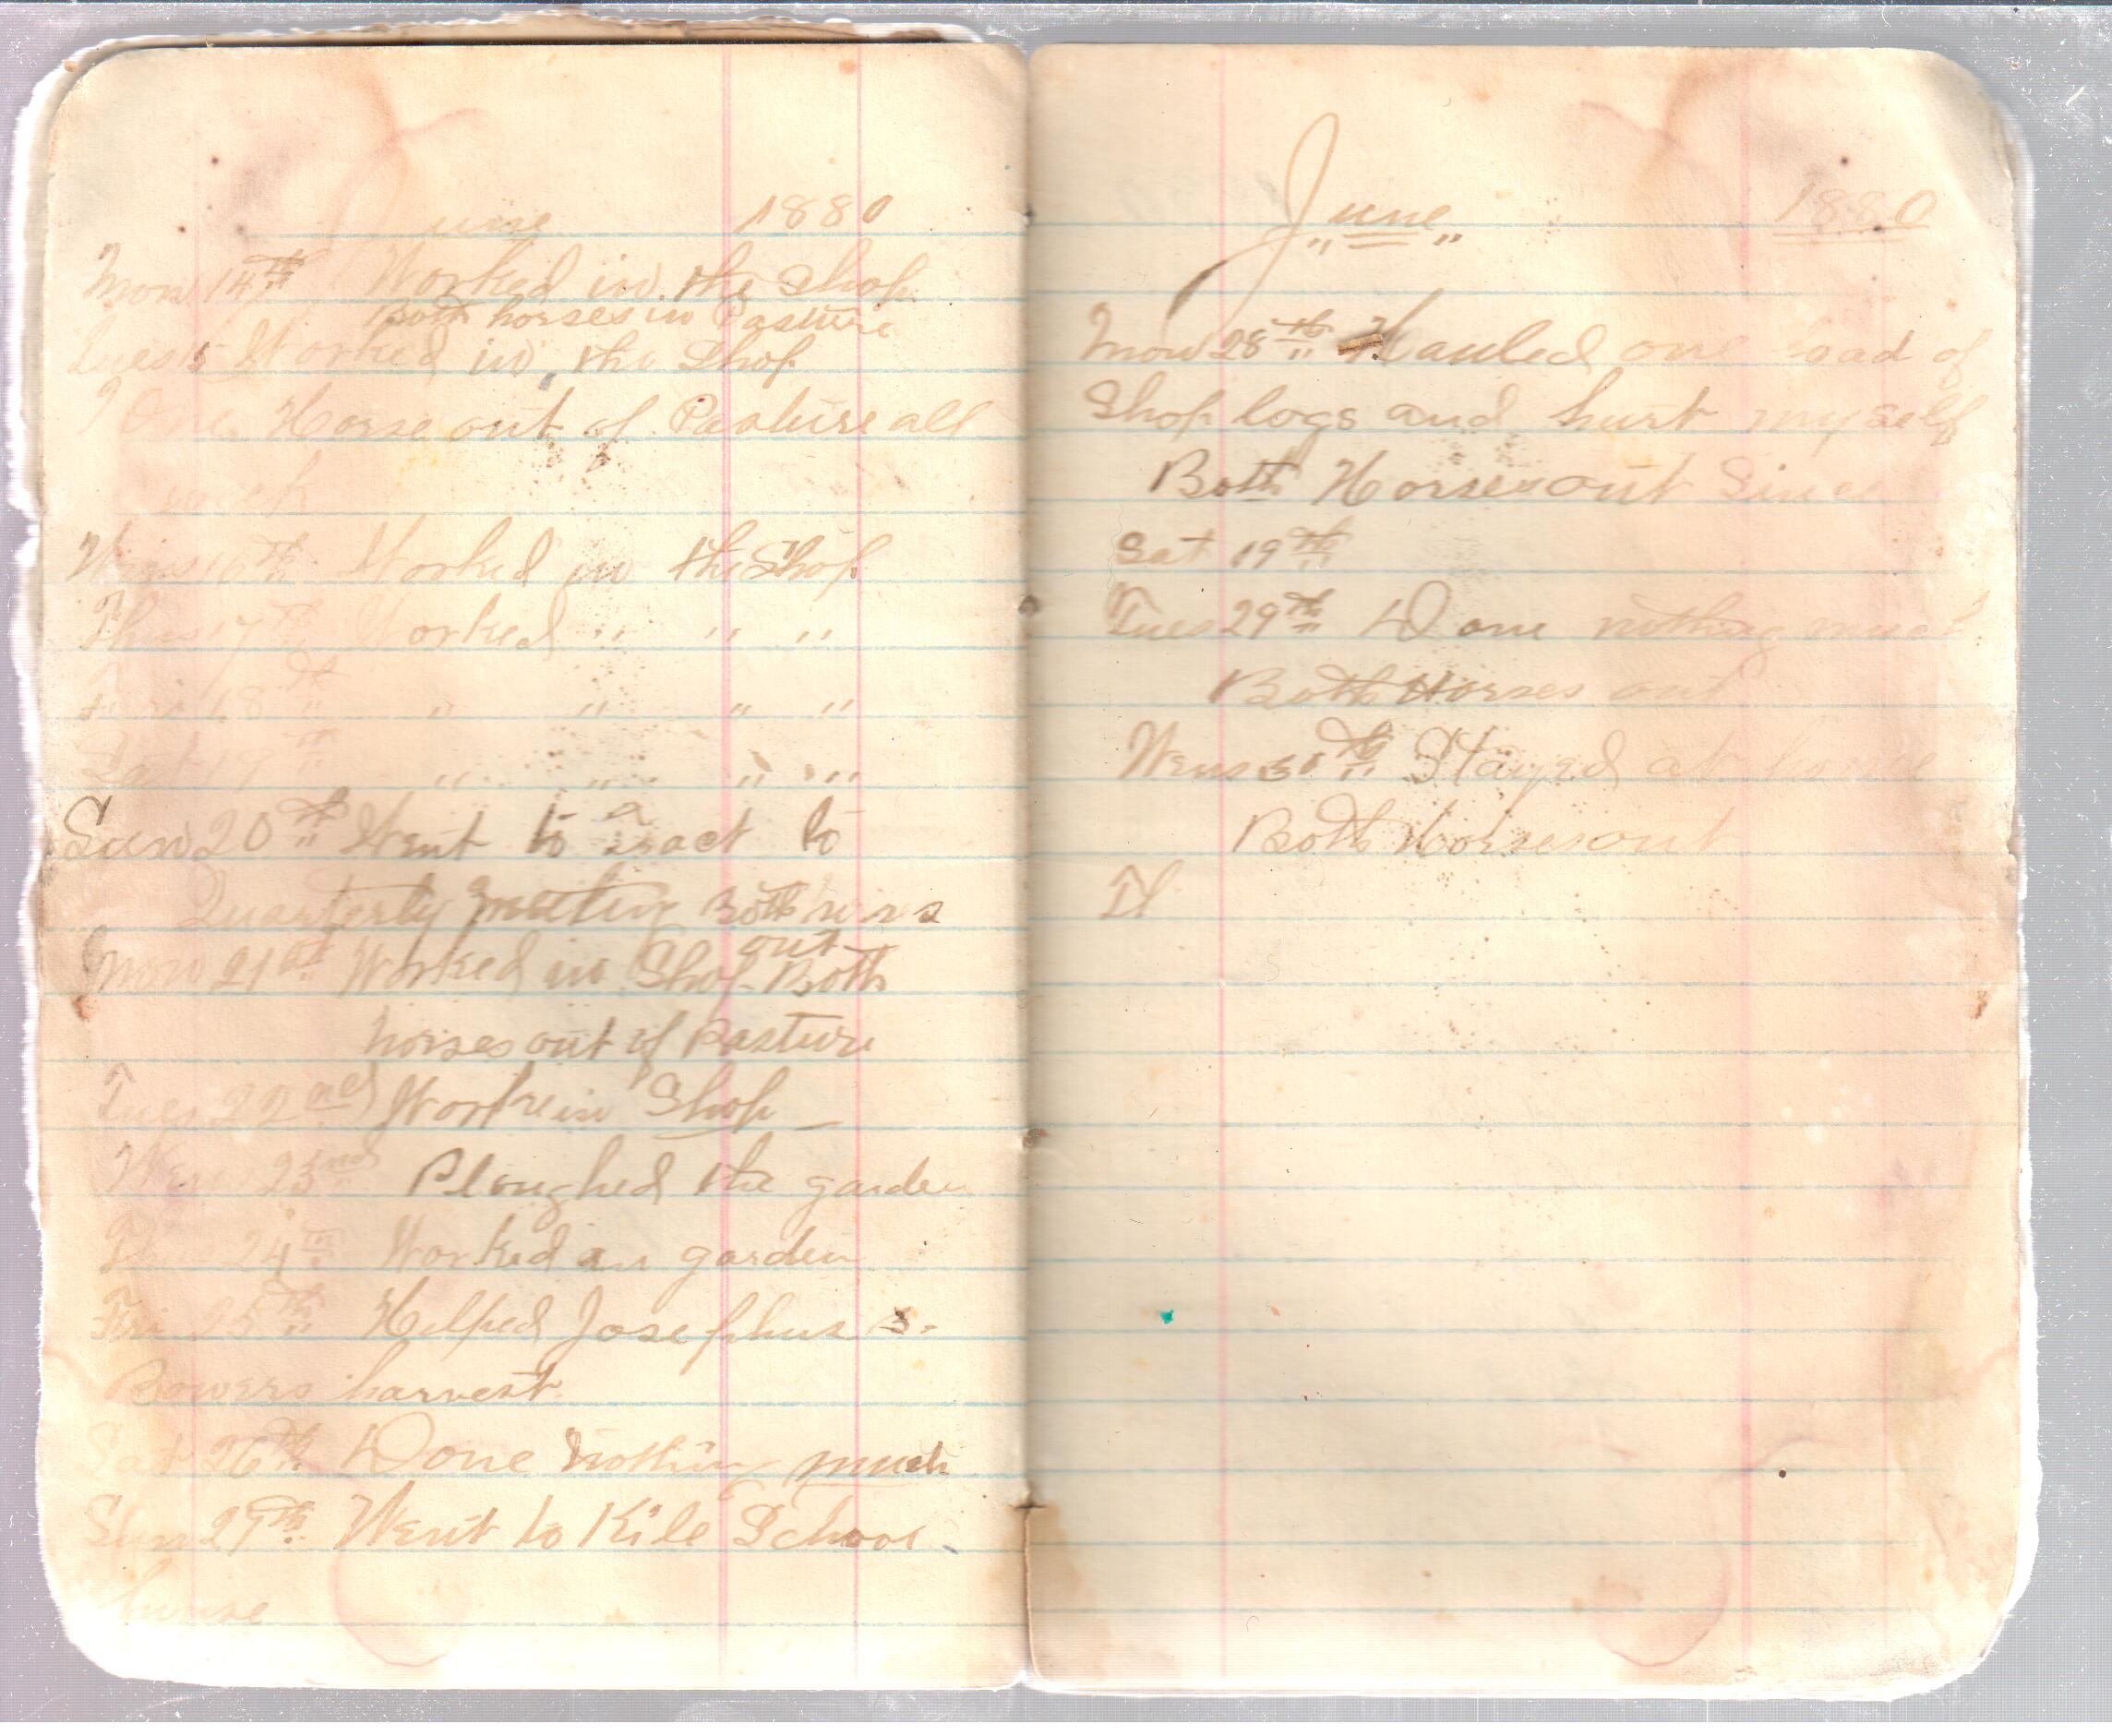 June 1880
Mon 14th Worked in the Shop
Both horses in Pasture
Tues 15 Worked in the Shop
One Horse out of Pasture all
week
Wens 16th Worked in the Shop
Thu 17th Worked " " "
Fri 18th " " " "
Sat 19th " " " "
Sun 20th Went to a to
Quarterly meeting Both horses
out
Mon 21st Worked in Shop Both
horses out of Pasture
Tues 22nd Work in Shop
Wens 23nd Ploughed the garden
Thu 24th Worked garden
Fri 25th Helped Josephus S.
Bowers harvest
Sat 26th Done Nothing much
Sun 27th Went to Kile School
house
June 1880
Mon 28th Hauled one load of
Shop logs and hurt my self
Both Horses out Since
Sat 19th
Tues 29th Done nothing much
Both Horses out
Wens 30th Stayed at home
Both horses out